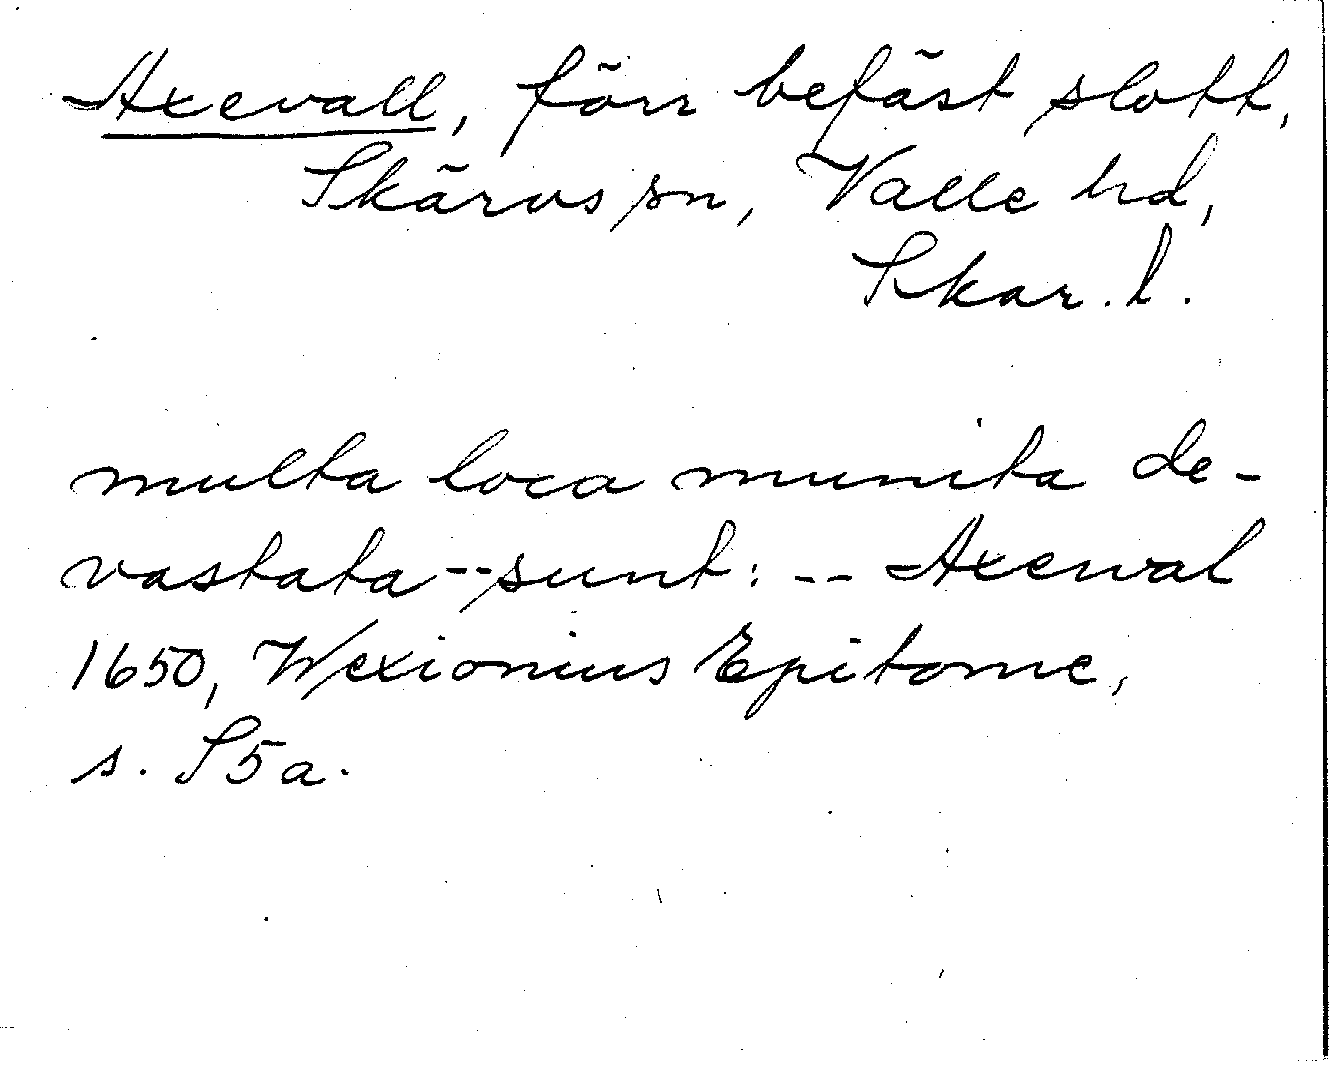 Axevall, förr befäst slott,
Skärvs sn, Valle hd,
Skar. l.
multa loca munita de-
vastata -- sunt: -- Axewal
1650, Wexionius Epitome,
s. S5a.